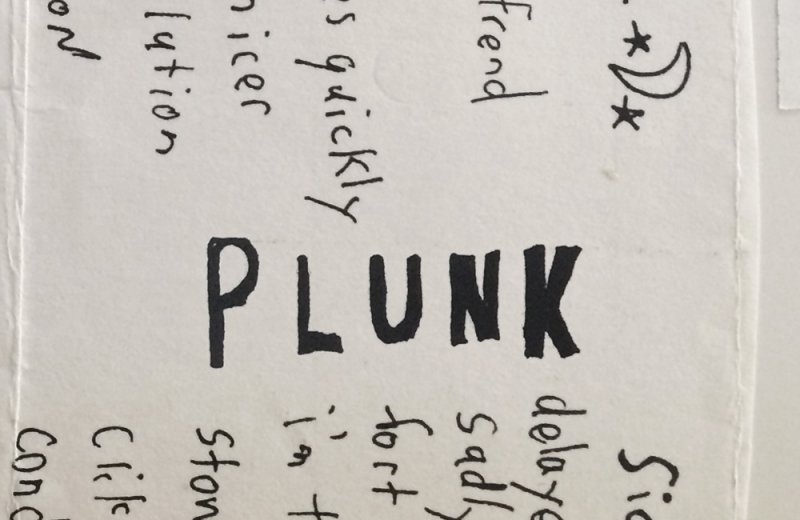 PLUNK
frend
delaye
sadly
s quickly
fort
nicer
ston
lution
Click
ON
cond